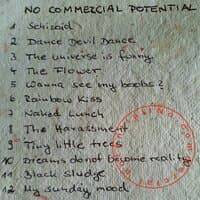 NO COMMERCIAL POTENTIAL
1 Schizoid
2 Dance Devil Dance
3 The universe is funny
4 The Flower
5 Wanna see my boobs?
6 Rainbow Kiss
7 Naked Lunch
8 The Harassment
9 Tiny little trees
10 Dreams do not become reality
11 Black Sludge
12 My sunday mood